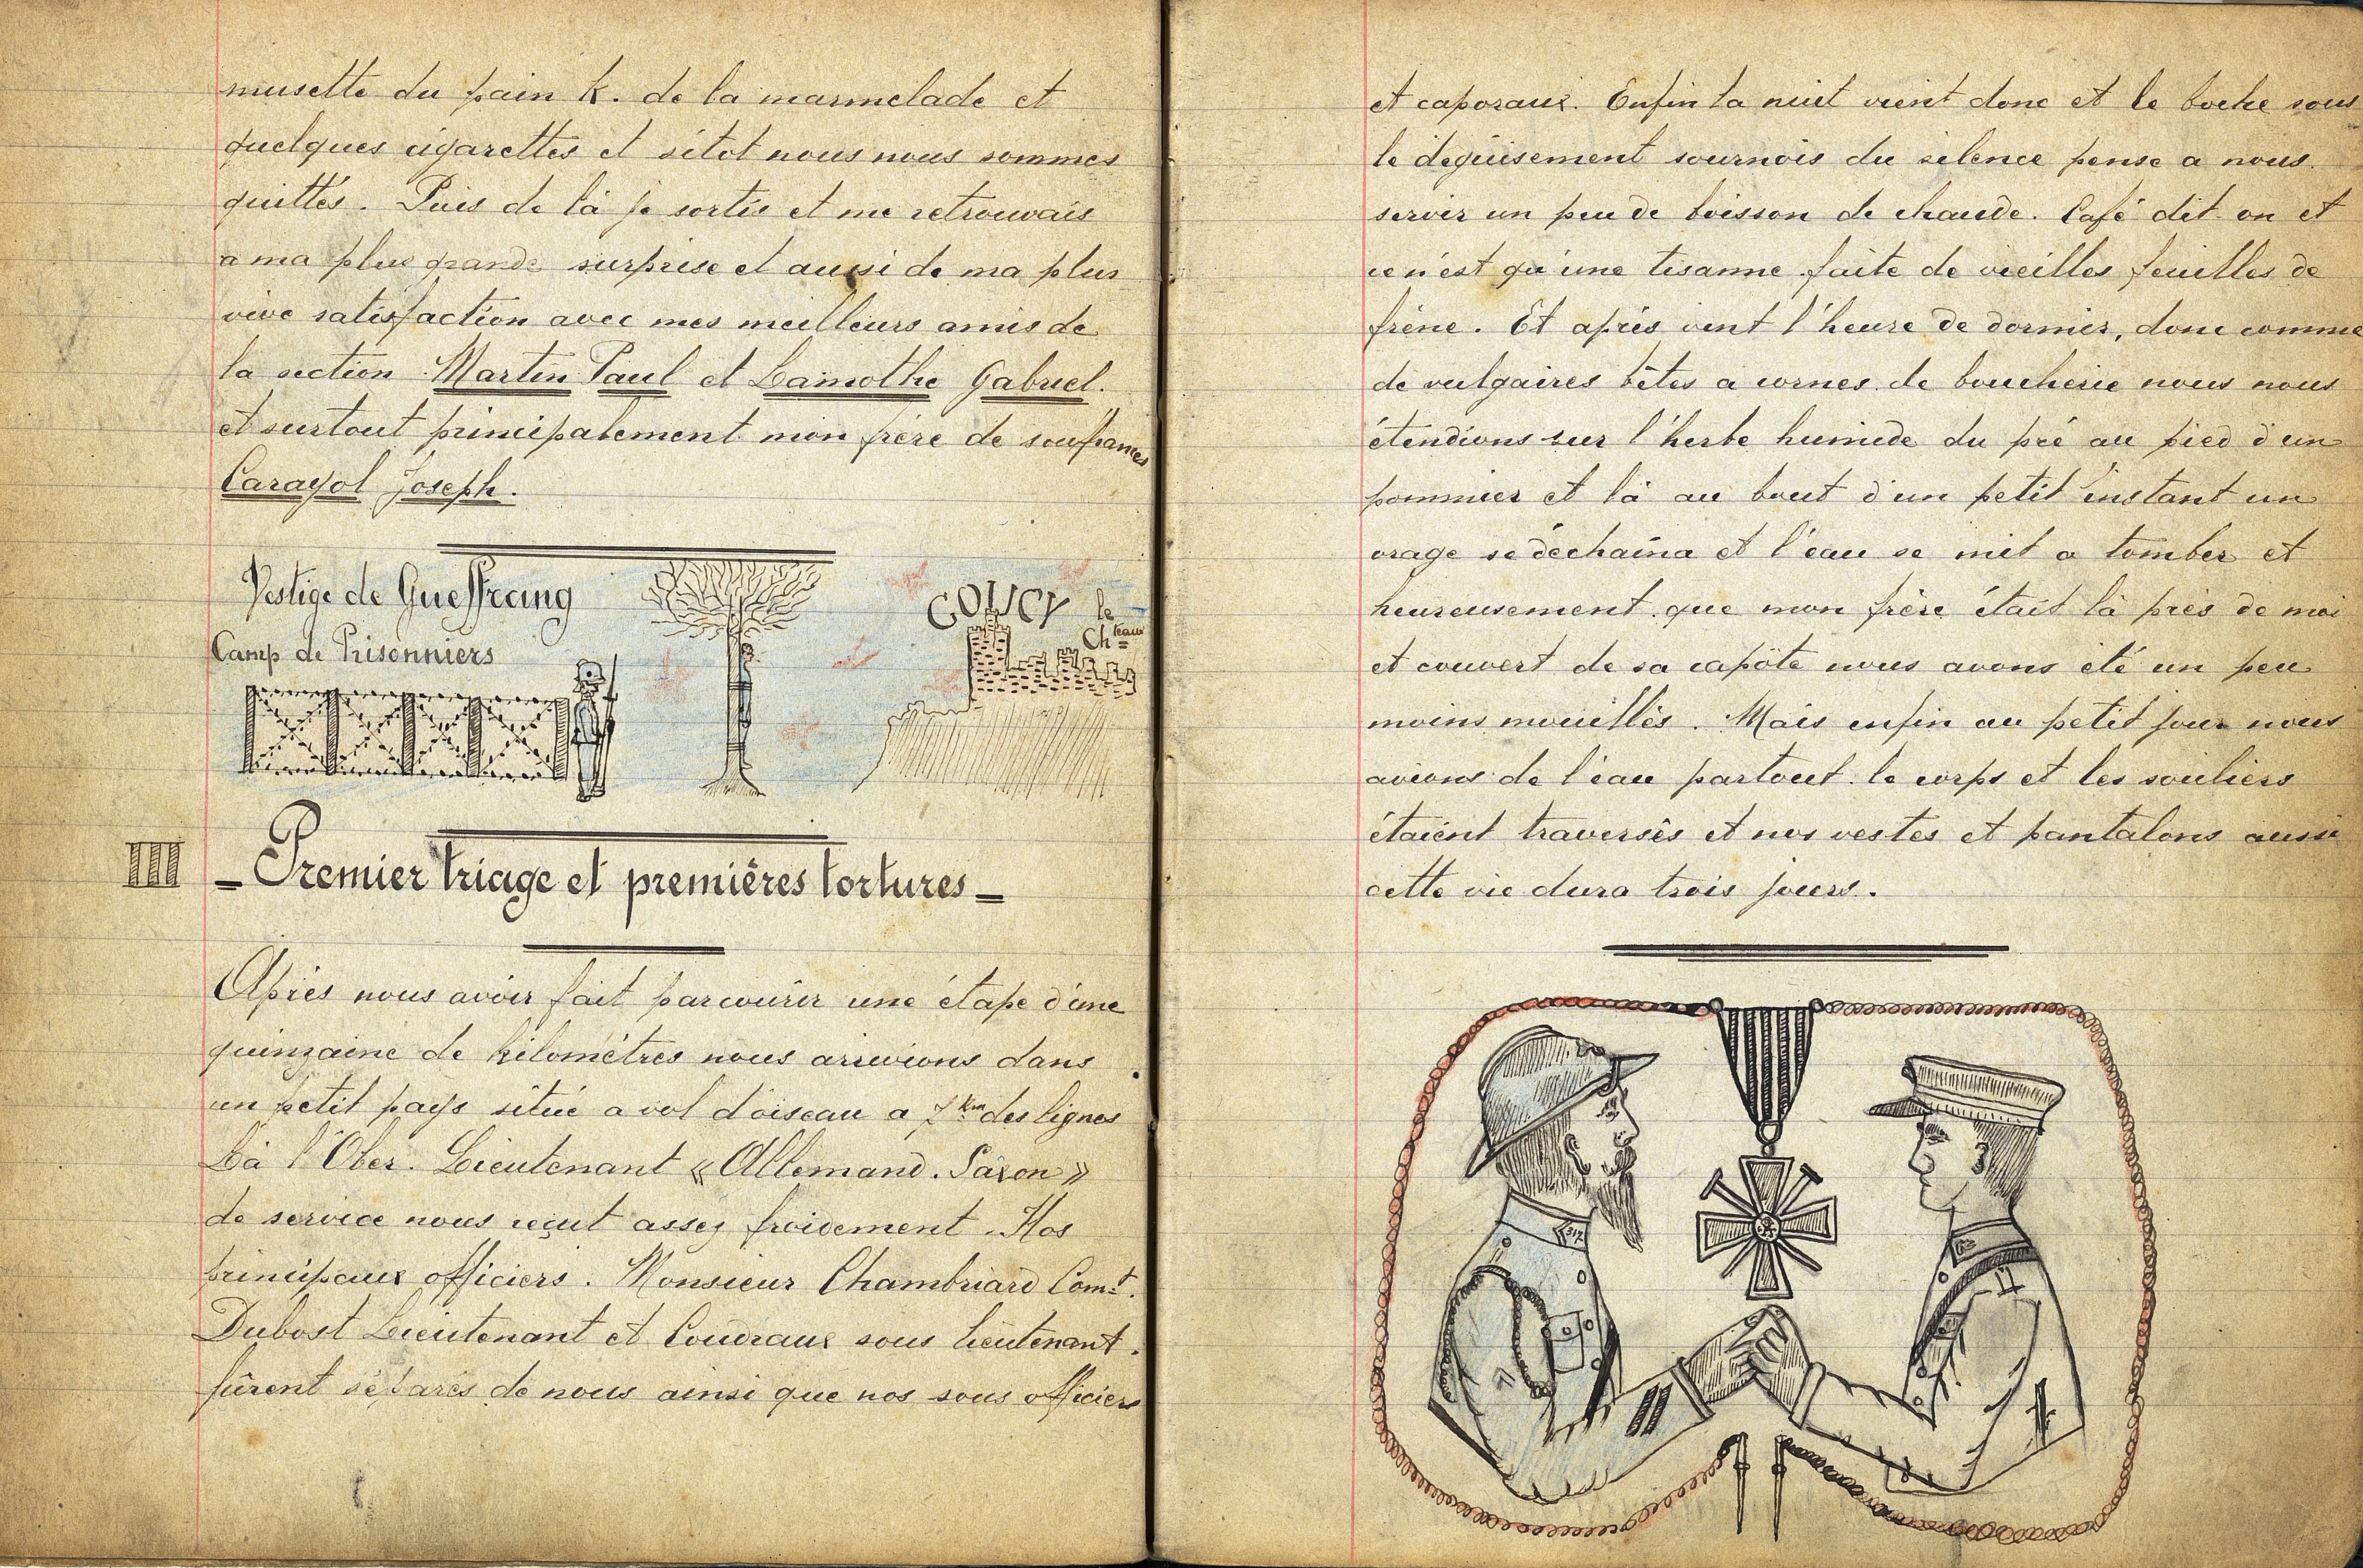 musette du pain K. de la marmelade et
quelques cigarettes et sitot nous nous sommes
quittés. Puis de là je sortis et me retrouvais
a ma plus grande surprise et aussi de ma plus
vive satisfaction avec mes meilleurs amis de
la section Martin Paul et Lamothe Gabriel.
et surtout principalement mon frère de soufrances
Carayol Joseph.
Vestige de Gueffrang
Camp de Prisonniers
COUCY le
Chteau
III
- Premier triage et premières tortures -
Après nous avoir fait parcourir une étape d'une
quinzaine de kilométres nous arrivions dans
un petit pays situé a vol d'oiseau a 7km des lignes
Là l'Ober. Lieutenant « Allemand. Saxon »
de service nous reçut assez froidement. Nos
principaux officiers. Monsieur Chambriard Comt.
Dubost Lieutenant et Coudraux sous lieutenant.
fûrent séparés de nous ainsi que nos sous officiers
et caporaux. Enfin la nuit vient donc et le boche sous
le déguisement sournois du silence pense a nous
servir un peu de boisson de chaude. Café dit on et
ce n'est qu'une tisanne faite de vieilles feuilles de
frêne. Et après vint l'heure de dormir, donc comme
de vulgaires bêtes a cornes de boucherie nous nous
étendions sur l'herbe humide du pré au pied d'un
pommier et là au bout d'un petit instant un
orage se déchaîna et l'eau se mit a tomber et
heureusement que mon frère était là près de moi
et couvert de sa capôte nous avons été un peu
moins mouillés. Mais enfin au petit jour nous
avions de l'eau partout le corps et les souliers
étaient traversés et nos vestes et pantalons aussi
cette vie dura trois jours.
317